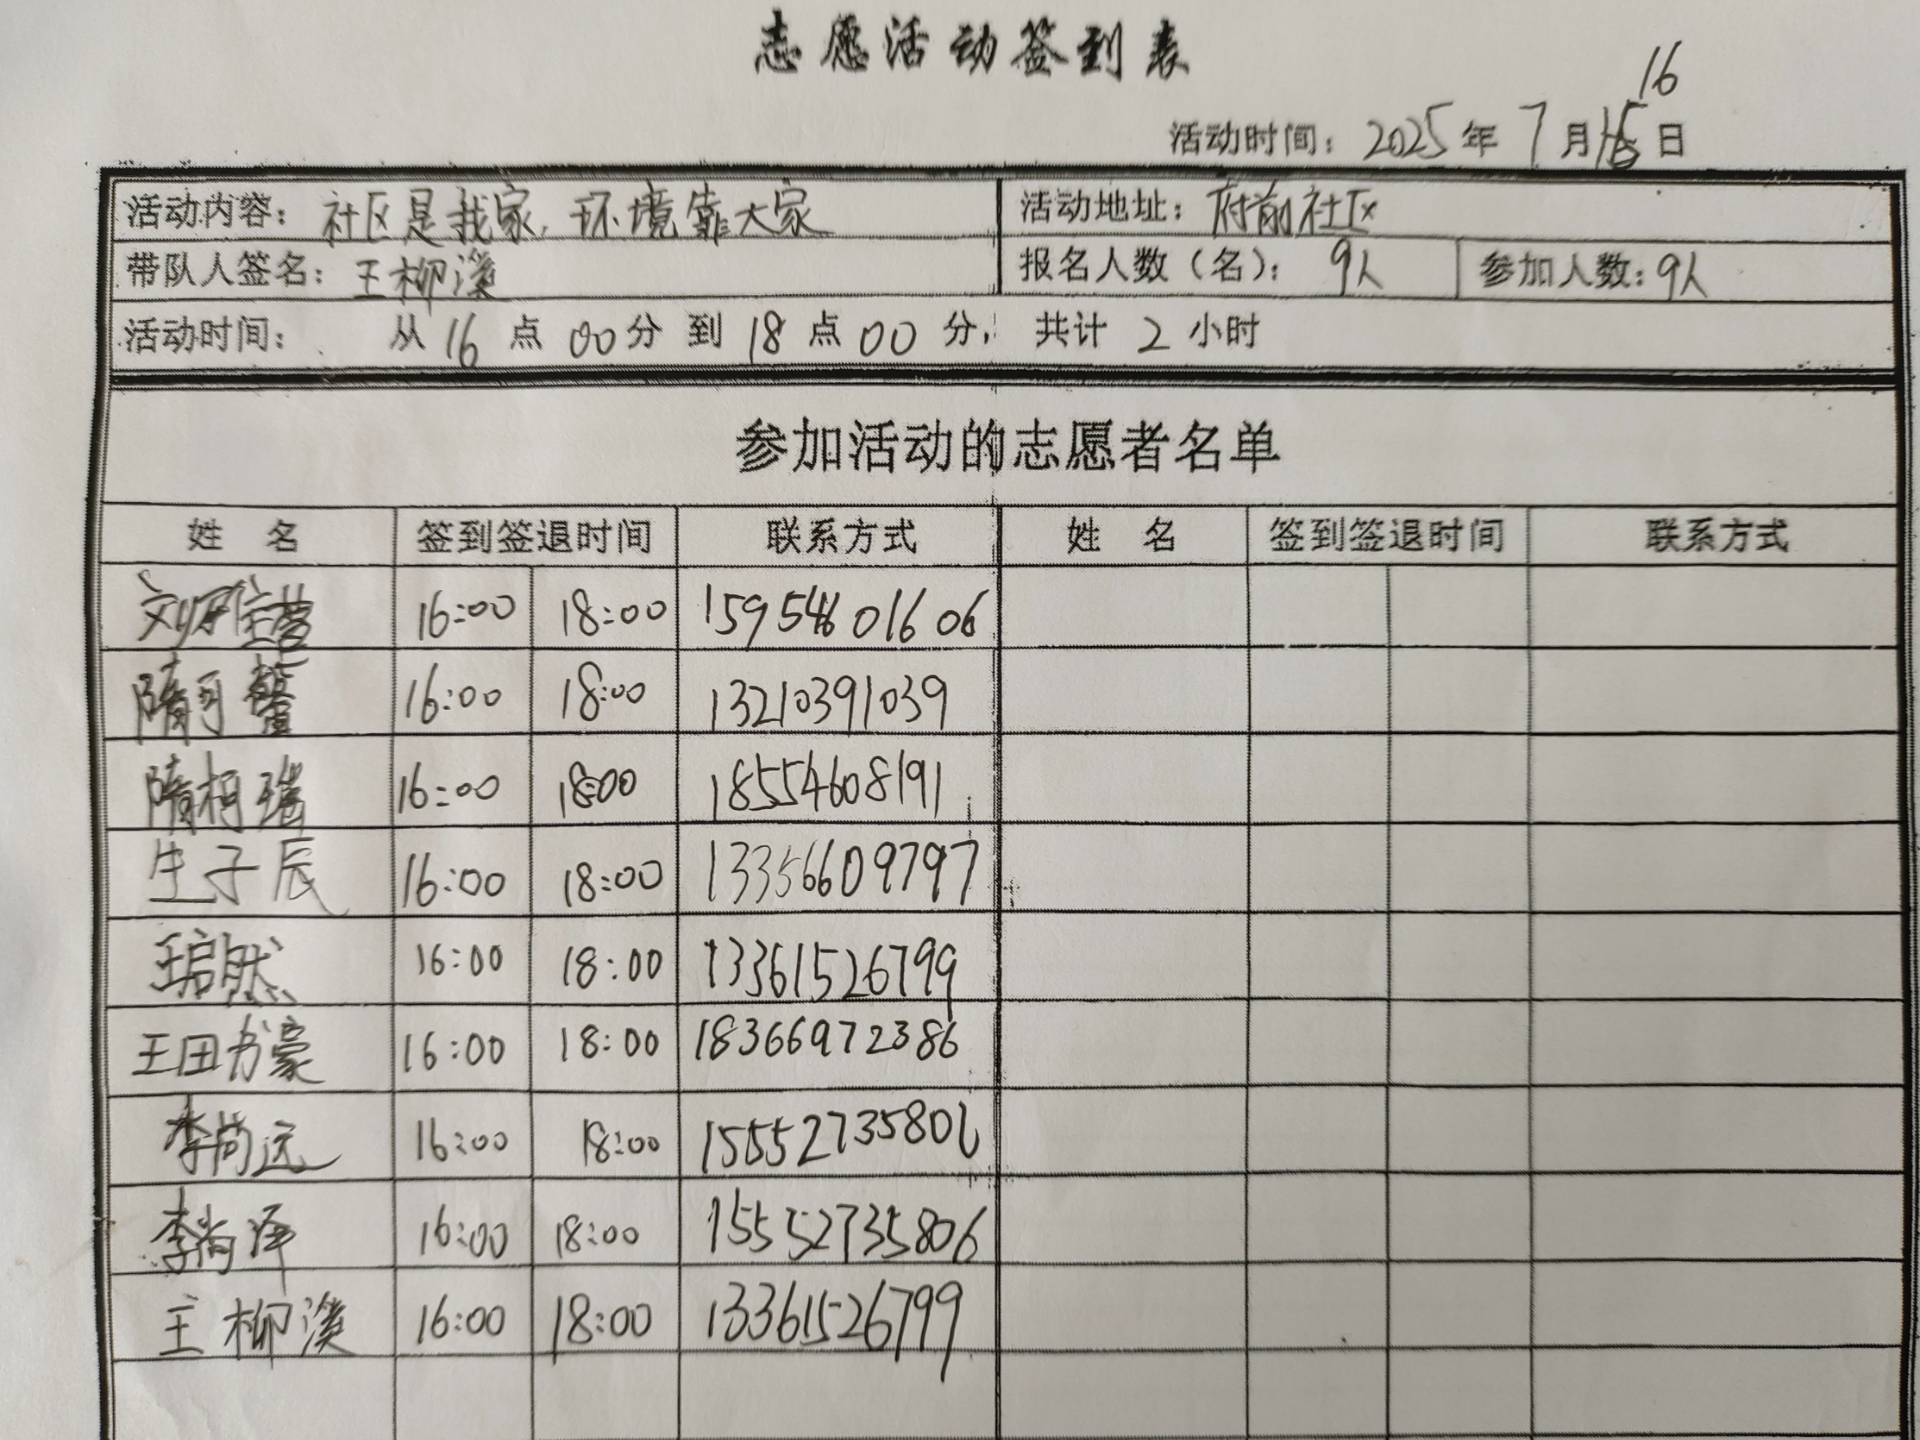 志愿活动签到表
16
活动时间：2025年7月15日
活动内容：社区是我家，环境靠大家 活动地址：府前社区
带队人签名：王柳溪 报名人数（名）：9人 参加人数：9人
活动时间： 从16点00分到18点00分，共计2小时
参加活动的志愿者名单
姓 名 签到签退时间 联系方式 姓 名 签到签退时间 联系方式
16:00 18:00 15954601606
隋可馨 16:00 18:00 13210391039
隋柯瑞 16:00 18:00 18554608191
生子辰 16:00 18:00 13356609797
王启然 16:00 18:00 13361526799
王田书豪 16:00 18:00 18366972386
李尚远 16:00 18:00 15552735806
李尚泽 16:00 18:00 15552735806
王柳溪 16:00 18:00 13361526799